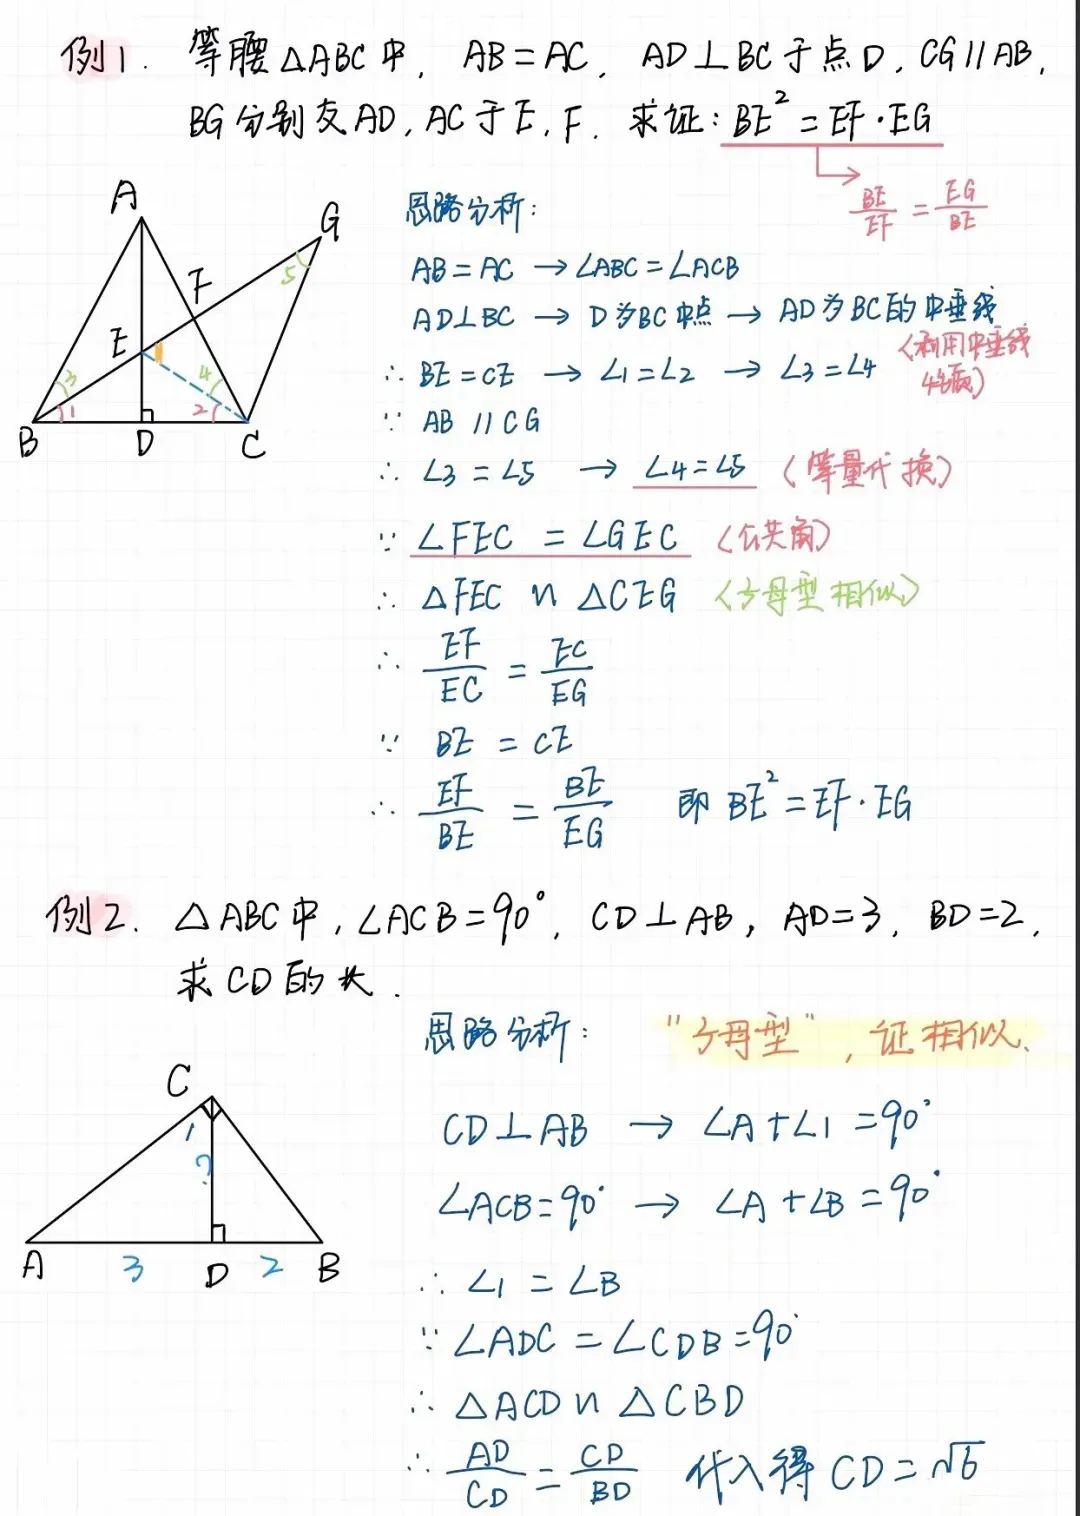 例1. 等腰△ABC中, AB=AC, AD⊥BC于点D, CG∥AB,
BG分别交AD, AC于E, F. 求证: BE²=EF·EG
BE/EF = EG/BE
思路分析:
AB=AC → ∠ABC=∠ACB
AD⊥BC → D为BC中点 → AD为BC的中垂线
∴ BE=CE → ∠1=∠2 → ∠3=∠4 (利用中垂线
性质)
∵ AB∥CG
∴ ∠3=∠5 → ∠4=∠5 (等量代换)
∵ ∠FEC=∠GEC (公共角)
∴ △FEC∽△CEG (子母型相似)
∴ EF/EC = EC/EG
∵ BE=CE
∴ EF/BE = BE/EG 即 BE²=EF·EG
A
G
F
5
E
3
4
1
2
B
D
C
例2. △ABC中, ∠ACB=90°, CD⊥AB, AD=3, BD=2,
求CD的长.
思路分析: "子母型", 证相似.
CD⊥AB → ∠A+∠1=90°
∠ACB=90° → ∠A+∠B=90°
∴ ∠1=∠B
∵ ∠ADC=∠CDB=90°
∴ △ACD∽△CBD
∴ AD/CD = CD/BD 代入得CD=√6
C
1
?
A
3
D
2
B